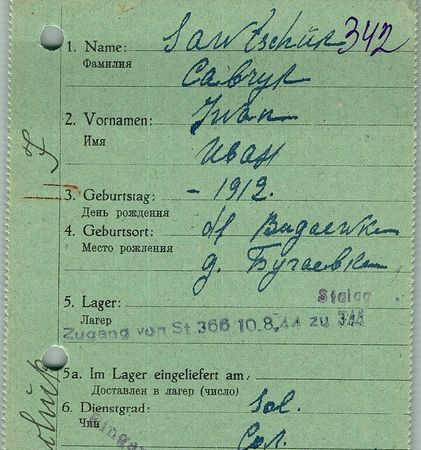 1. Name: Sawtschuk 342
Фамилия Савчук
2. Vornamen: Iwan
Имя Иван
3. Geburtstag: - 1912.
День рождения
4. Geburtsort: df Bugaewka
Место рождения д. Бугаевка
5. Lager: Stalag
Лагер
Zugang von St. 366 10.8.44 zu 344
5a. Im Lager eingeliefert am
Доставлен в лагер (число)
6. Dienstgrad: Sol.
Чин Сол.